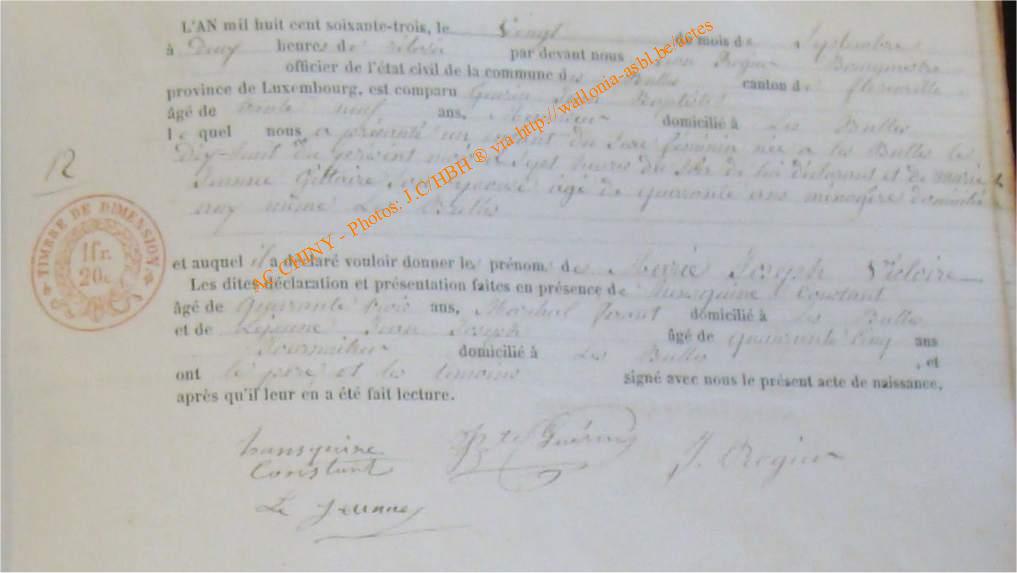 L'AN mil huit cent soixante-trois, le Vingt du mois de Septembre
à Deux heures de relevée par devant nous Jean Rogier Bourgmestre
officier de l'état civil de la commune des Bulles canton de florenville
province de Luxembourg, est comparu Guérin Jean Baptiste
âgé de trente neuf ans, domicilié à Les Bulles
lequel nous a présenté un enfant du sexe féminin née a les Bulles le
Dix-huit du présent mois a Sept heures du Soir de lui déclarant et de marie
Jeanne Son épouse âgé de quarante ans ménagère domicilié
avec même Les Bulles
12
TIMBRE DE DIMENSION
1 fr.
20 c.
et auquel il a déclaré vouloir donner les prénoms de Marie Joseph Victoire
Les dites déclaration et présentation faites en présence de Constant
âgé de Quarante trois ans, Maréchal ferrant domicilié à Les Bulles
et de Lejeune Jean Joseph âgé de quarante cinq ans
domicilié à Les Bulles, et
ont le père et les témoins signé avec nous le présent acte de naissance,
après qu'il leur en a été fait lecture.
Constant
Bte Guérin
J. Rogier
Le Jeune
AC CHINY - Photos: J.C/HBH ® via http://wallonia-asbl.be/actes